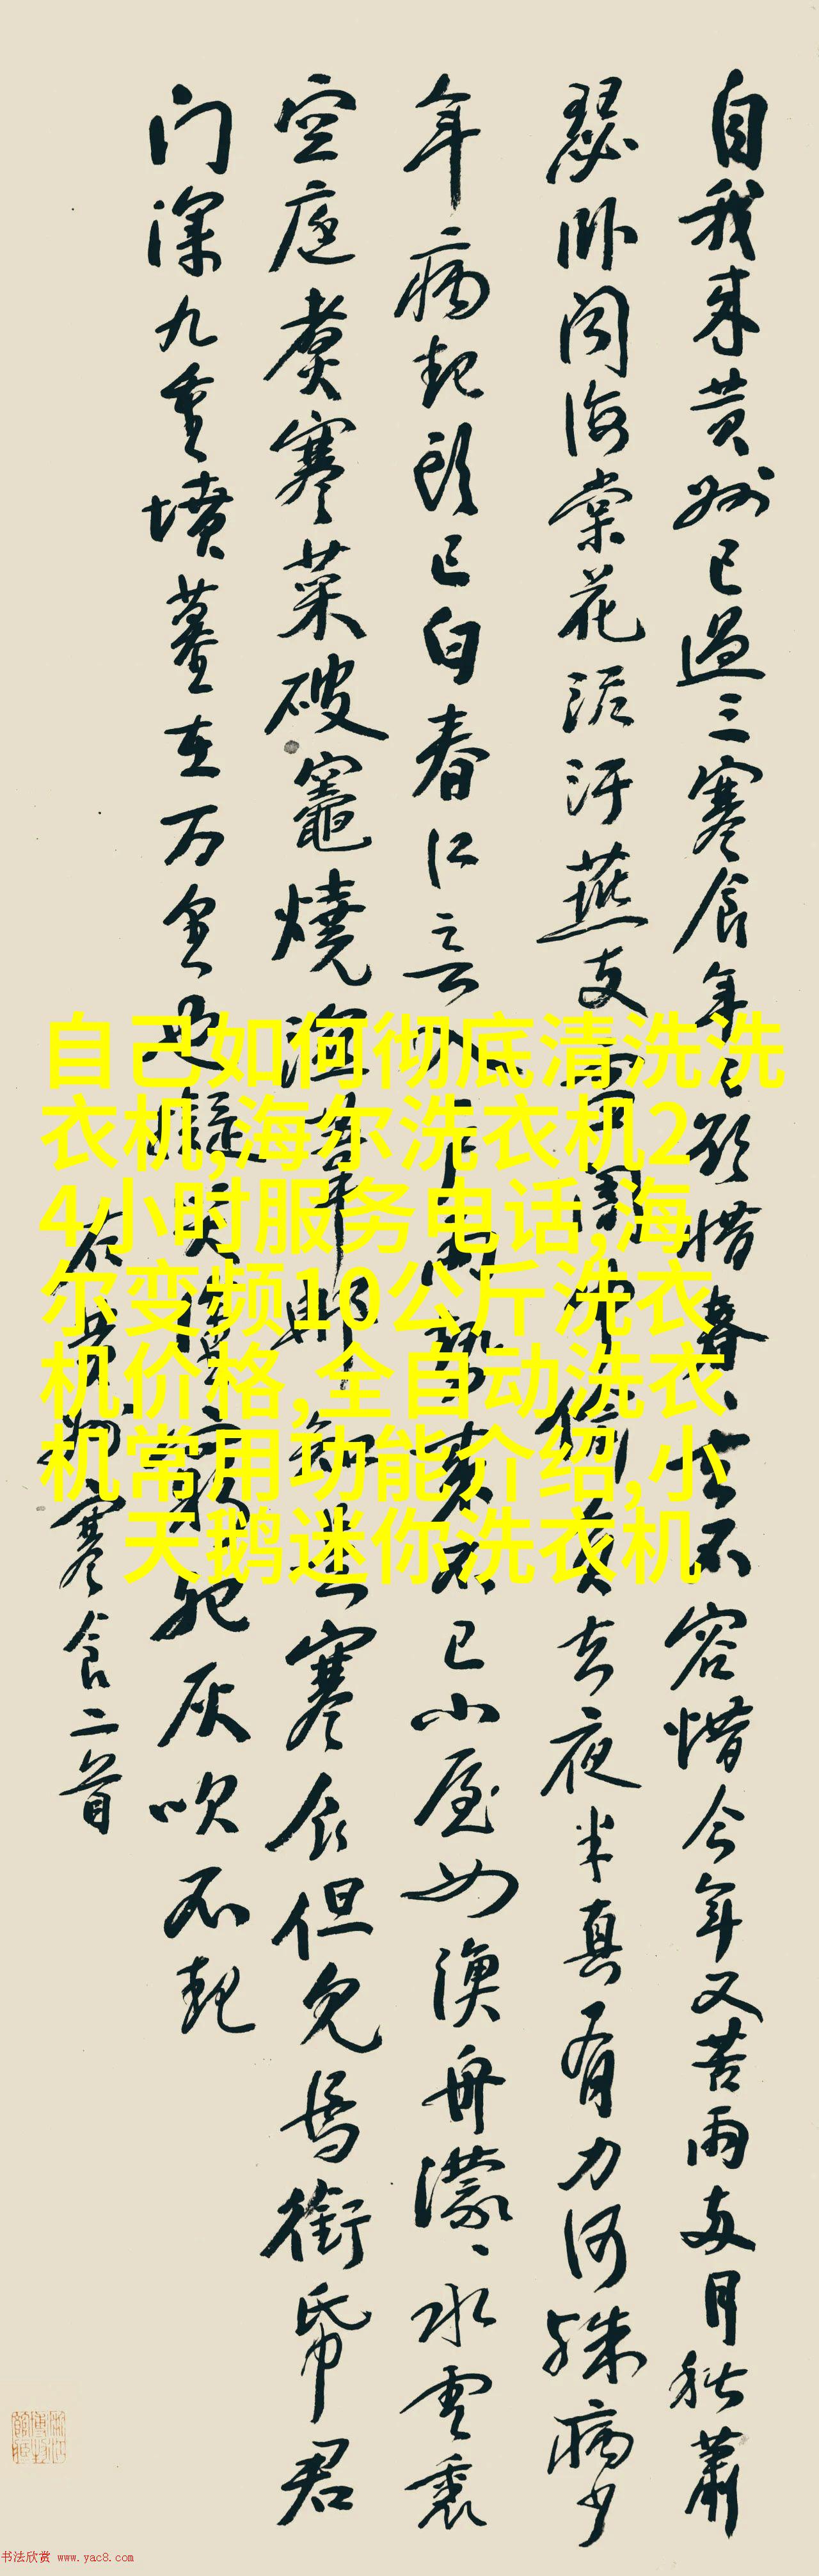 自我来黄州已過三寒食年〻欲惜春〻去不容惜今年又苦雨两月秋蕭
瑟卧闻海棠花泥汙燕支雪闇中偷負去夜半真有力何殊病少
年病起头已白春江入户雨势来不已小屋如渔舟濛〻水雲裏
空庖煮寒菜破竈燒湿葦那知是寒食但见烏銜帋君
门深九重墳墓在万里也擬哭塗窮死灰吹不起
右黄州寒食二首
自己如何彻底清洗洗
衣机,海尔洗衣机2
4小时服务电话,海
尔变频10公斤洗衣
机价格,全自动洗衣
机常用功能介绍,小
天鹅迷你洗衣机
书法欣赏 www.yac8.com